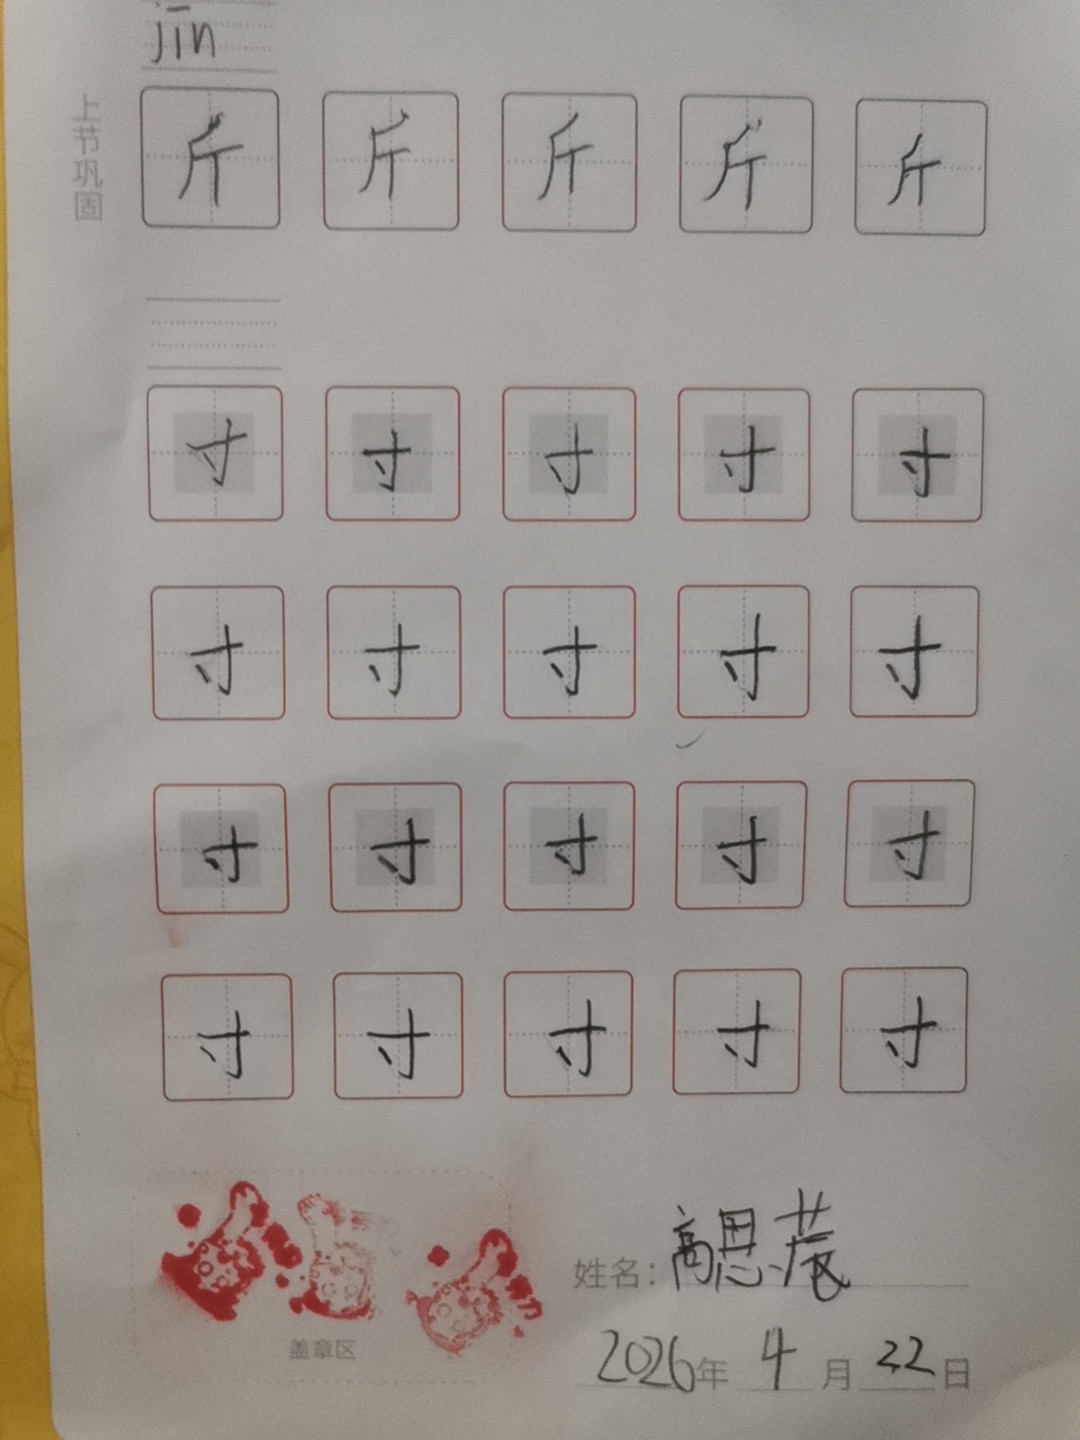 jīn
上节巩固
斤 斤 斤 斤 斤
寸 寸 寸 寸 寸
寸 寸 寸 寸 寸
寸 寸 寸 寸 寸
寸 寸 寸 寸 寸
姓名：高思
盖章区
2026年 4 月 22 日